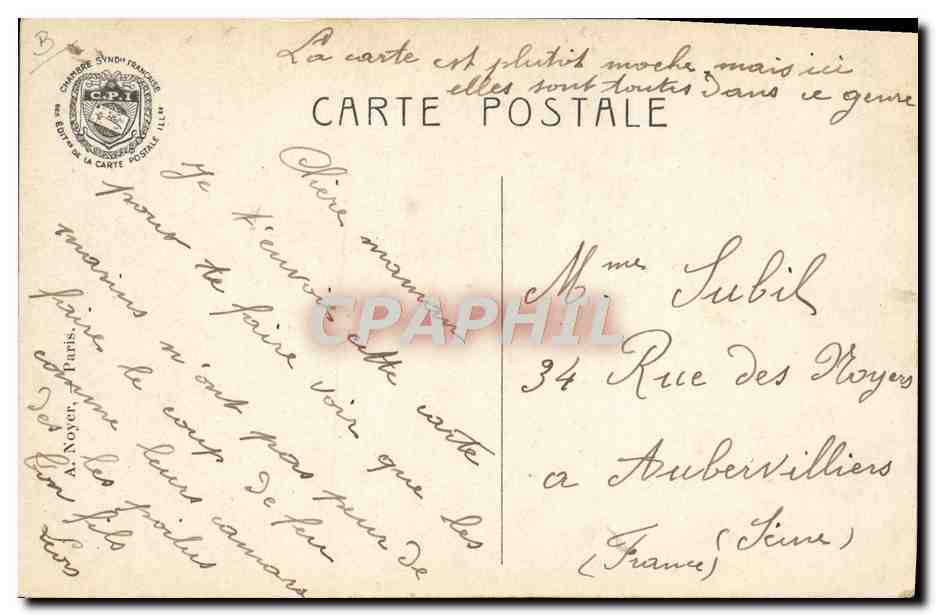 La carte est plutôt moche, mais ici
elles sont toutes dans ce genre
CARTE POSTALE
CHAMBRE SYNDle FRANÇAISE
DES EDITrs DE LA CARTE POSTALE ILLée
C.P.I
Chère maman,
Je t'envois cette carte
pour te faire voir que les
marins n'ont pas peur de
faire le coup de feu
comme leurs camara
des les poilus
Ton fils
A. Noyer, Paris.
Mme Subil
34 Rue des Noyers
a Aubervilliers
(Seine)
(France)
CPAPHIL